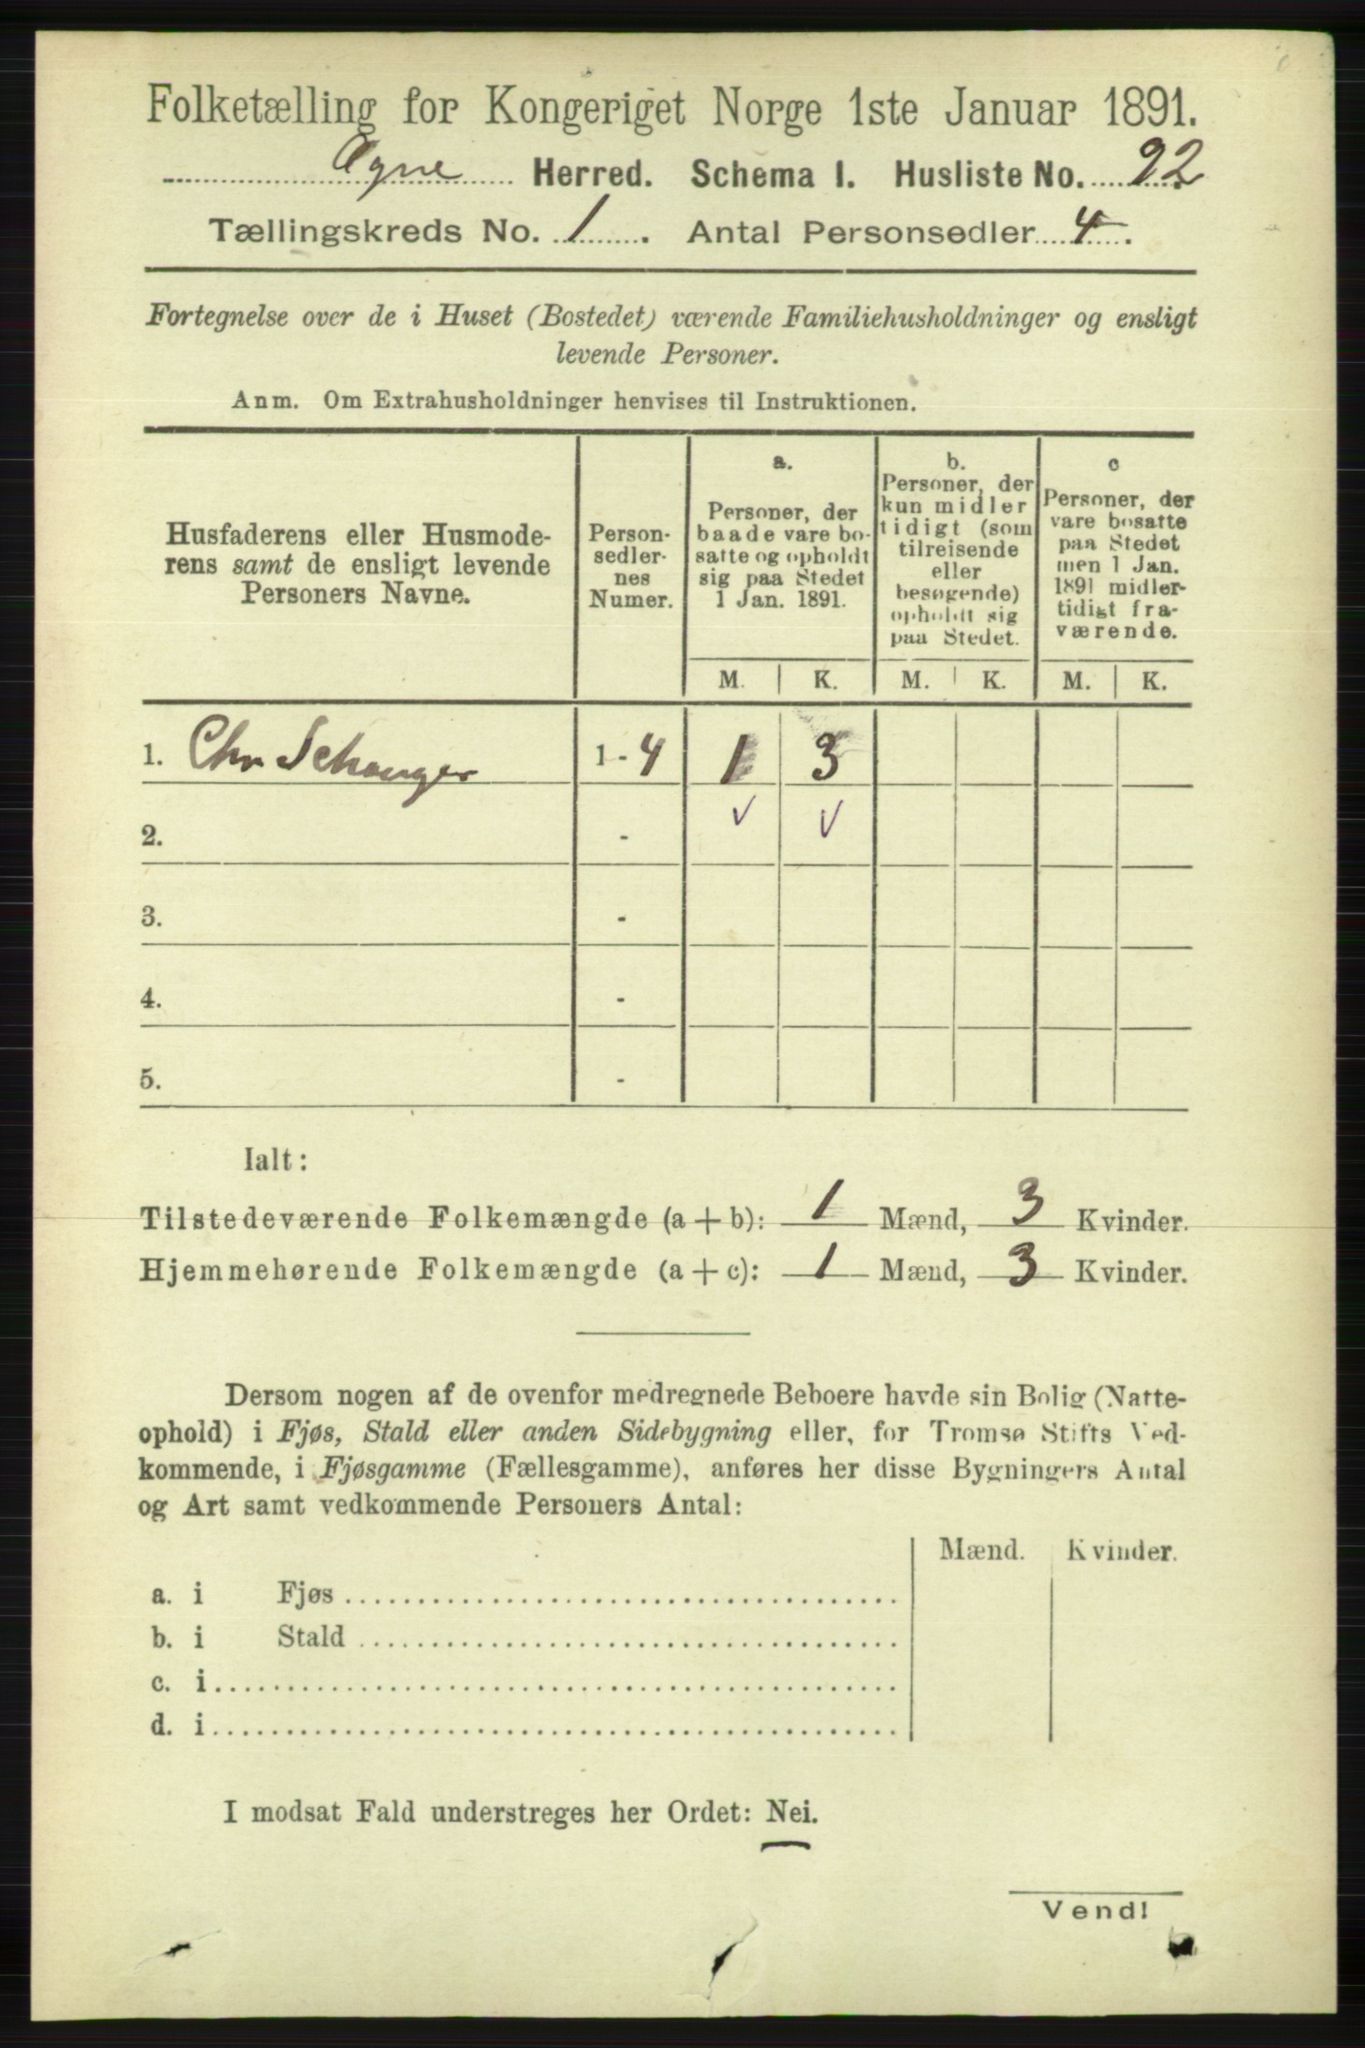 Folketælling for Kongeriget Norge 1ste Januar 1891.
Ogne Herred. Schema I. Husliste No. 22
Tællingskreds No. 1. Antal Personsedler 4.
Fortegnelse over de i Huset (Bostedet) værende Familiehusholdninger og ensligt
levende Personer.
Anm. Om Extrahusholdninger henvises til Instruktionen.
Husfaderens eller Husmode-
rens samt de ensligt levende
Personers Navne.
Person-
sedler-
nes
Numer.
a.
Personer, der
baade vare bo-
satte og opholdt
sig paa Stedet
1 Jan. 1891.
b.
Personer, der
kun midler
tidigt (som
tilreisende
eller
besøgende)
opholdt sig
paa Stedet.
c
Personer, der
vare bosatte
paa Stedet
men 1 Jan.
1891 midler-
tidigt fra-
værende.
M. K. M. K. M. K.
1. Chr 1 - 4 1 3
2. - ✓ ✓
3. -
4. -
5. -
Ialt:
Tilstedeværende Folkemængde (a + b): 1 Mænd, 3 Kvinder.
Hjemmehørende Folkemængde (a + c): 1 Mænd, 3 Kvinder.
Dersom nogen af de ovenfor medregnede Beboere havde sin Bolig (Natte-
ophold) i Fjøs, Stald eller anden Sidebygning eller, for Tromsø Stifts Ved-
kommende, i Fjøsgamme (Fællesgamme), anføres her disse Bygningers Antal
og Art samt vedkommende Personers Antal:
Mænd. Kvinder.
a. i Fjøs
b. i Stald
c. i
d. i
I modsat Fald understreges her Ordet: Nei.
Vend!